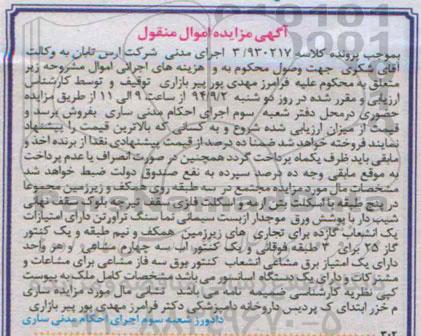 آگهی مزایده اموال منقول
بموجب پرونده کلاسه ۳/۹۳۰۲۱۷ اجرای مدنی شرکت ارس تابان به وکالت
آقای شکری جهت وصول محکوم به و هزینه های اجرائی اموال مشروحه زیر
متعلق به محکوم علیه فرامرز مهدی پور پیر بازاری توقیف و توسط کارشناس
ارزیابی و مقرر شده در روز دو شنبه ۹۴/۹/۲ از ساعت ۹ الی ۱۱ از طریق مزایده
حضوری درمحل دفتر شعبه سوم اجرای احکام مدنی ساری بفروش برسد و
قیمت از میزان ارزیابی شده شروع و به کسانی که بالاترین قیمت را پیشنهاد
نمایند فروخته خواهد شد ضمنا ده درصد از قیمت پیشنهادی نقدا از برنده اخذ و
مابقی باید ظرف یکماه پرداخت گردد همچنین در صورت انصراف یا عدم پرداخت
به موقع مابقی وجه ده درصد سپرده به نفع صندوق دولت ضبط خواهد شد
مشخصات مال مورد مزایده مجتمع در سه طبقه روی همکف و زیرزمین مجموعا
در پنج طبقه با اسکلت بتن آرمه و اسکلت فلزی سقف تیرچه بلوک سقف نهائی
شیب دار با پوشش ورق موجدار ازبست سیمانی نما سنگ تراورتن دارای امتیازات
یک انشعاب گازده برای تجاری های زیرزمین همکف و نیم طبقه و یک کنتور
گاز ۲۵ برای ۳ طبقه فوقانی و یک کنتور آب سه چهارم مشاعی و هر واحد
دارای یک امتیاز برق مشاعی انشعاب کنتور برق سه فاز مشاعی برای مشاعات و
مشترکات و دارای یک دستگاه آسانسور می باشد مشخصات کامل ملک به پیوست
کپی نظریه کارشناسی ضمیمه نامه می باشد نشانی مال مورد مزایده ساری
م خزر ابتدای ک پردیس داروخانه دامپزشکی دکتر فرامرز مهدی پور پیر بازاری
دادورز شعبه سوم اجرای احکام مدنی ساری